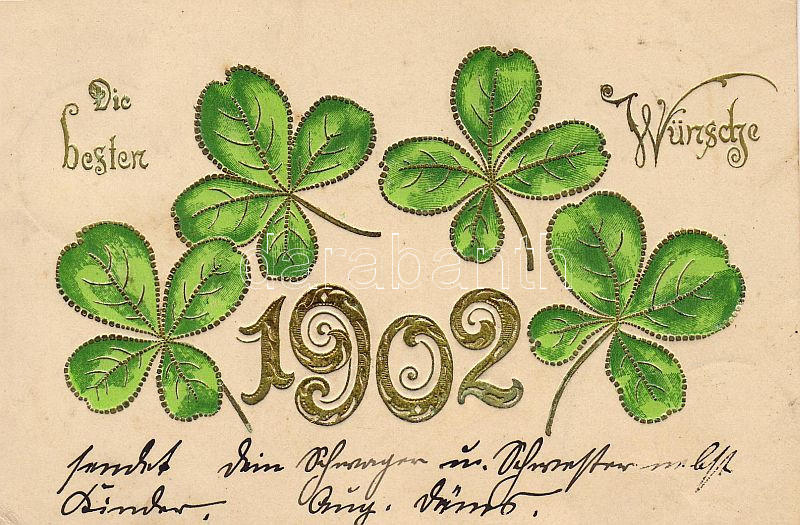 Die
besten
Wünsche
darabanth
1902
sendet dein Schwager u. Schwester nebst
Kinder. Aug.